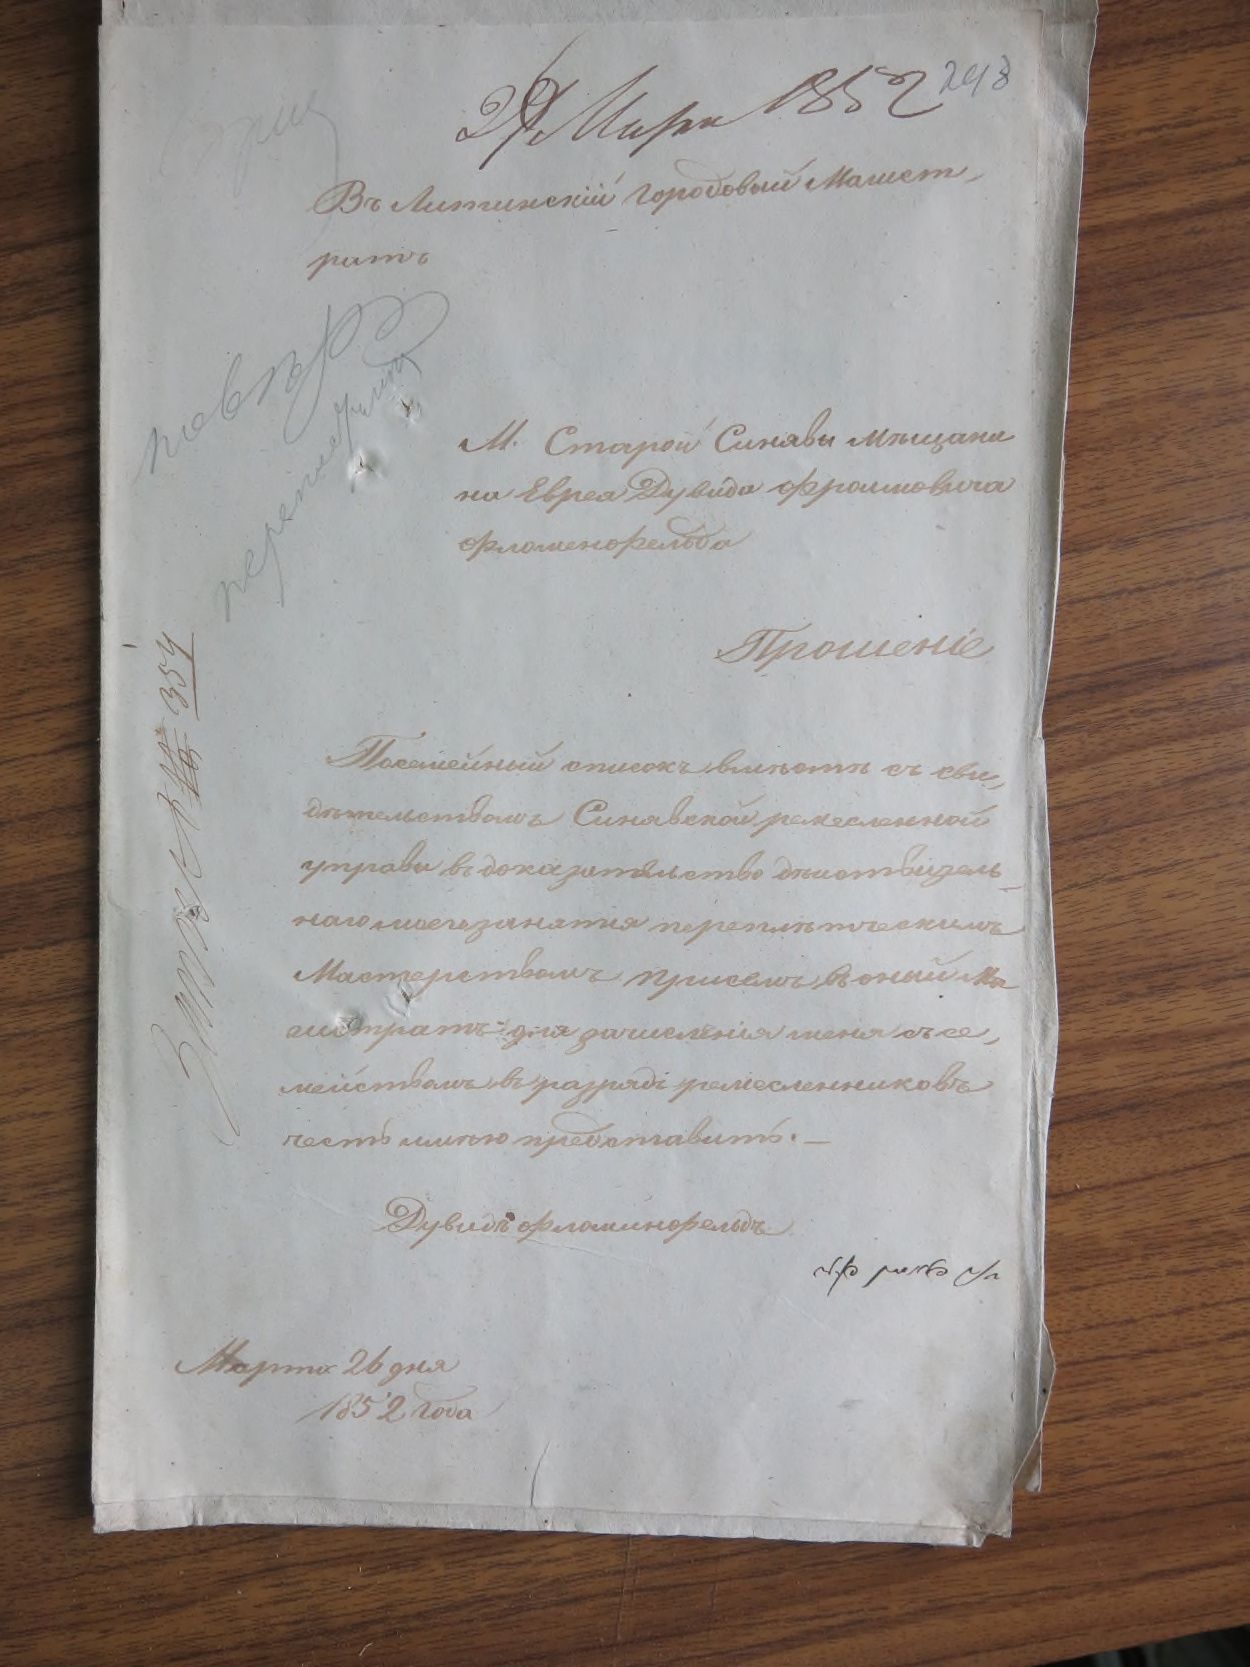 27 Марта 1852
248
Въ Литинскій Городовый Магист,
ратъ
М. Старой Синявы мѣщани
на Еврея Дувида Фроимовича
Фломенфельда
Прошеніе
Посемейный списокъ вмѣстѣ съ сви,
дѣтельствомъ Синявской ремесленной
управы въ доказательство дѣйствитель-
наго моего занятія переплетческимъ
Мастерствомъ присемъ въ оный Ма
гистратъ для зачисленія меня съ се,
мействомъ въ разрядъ ремесленниковъ
честь имѣю представить. —
Дувидъ Фломинфельдъ
Марта 26 дня
1852 года
переплетчик
№ 354